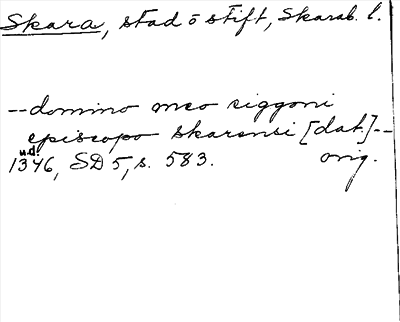 Skara, stad o stift, Skarab. l.
--domino meo siggoni
episcopo skarensi [dat.]--
u.d.
1346, SD 5, s. 583. orig.